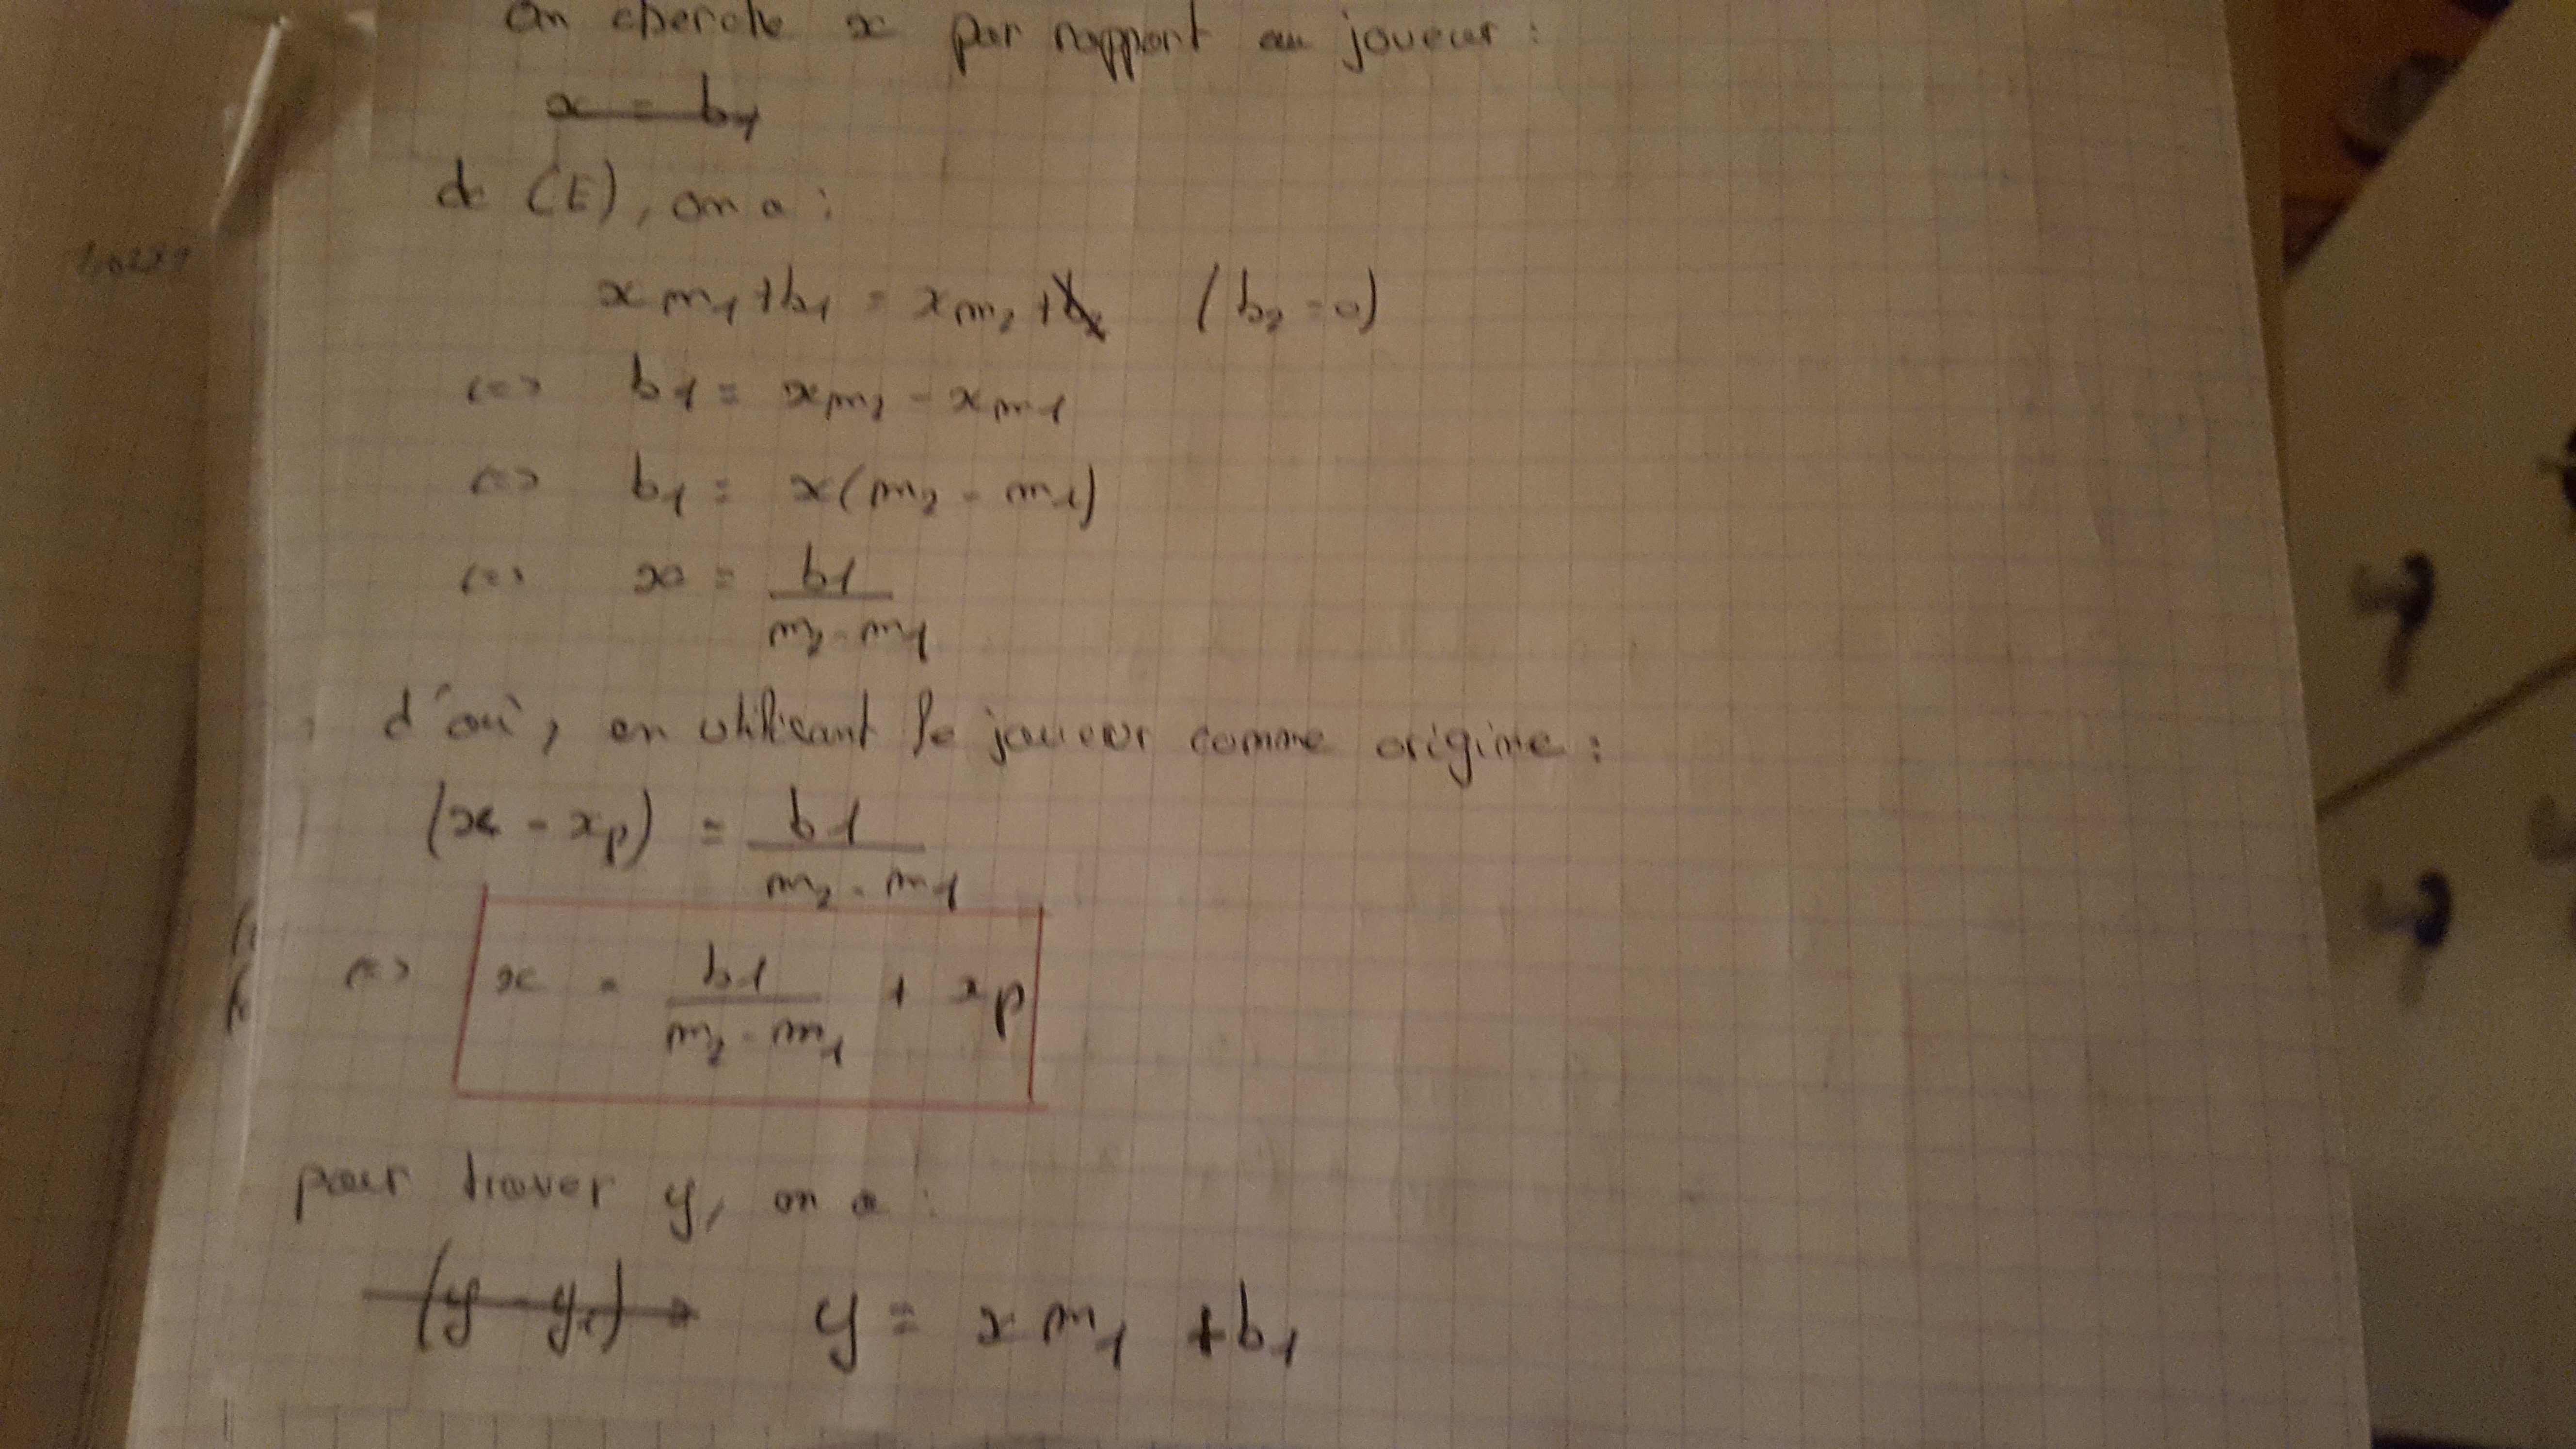 On cherche x par rapport au joueur :
x = b1
de (E), on a :
x m1 + b1 = x m2 + b2 (b2 = 0)
<=> b1 = x m2 - x m1
<=> b1 = x(m2 - m1)
<=> x = b1 / (m2 - m1)
d'où, en utilisant le joueur comme origine :
(x - xp) = b1 / (m2 - m1)
<=> x = b1 / (m2 - m1) + xp
pour trover y, on a :
(y - y1) y = x m1 + b1